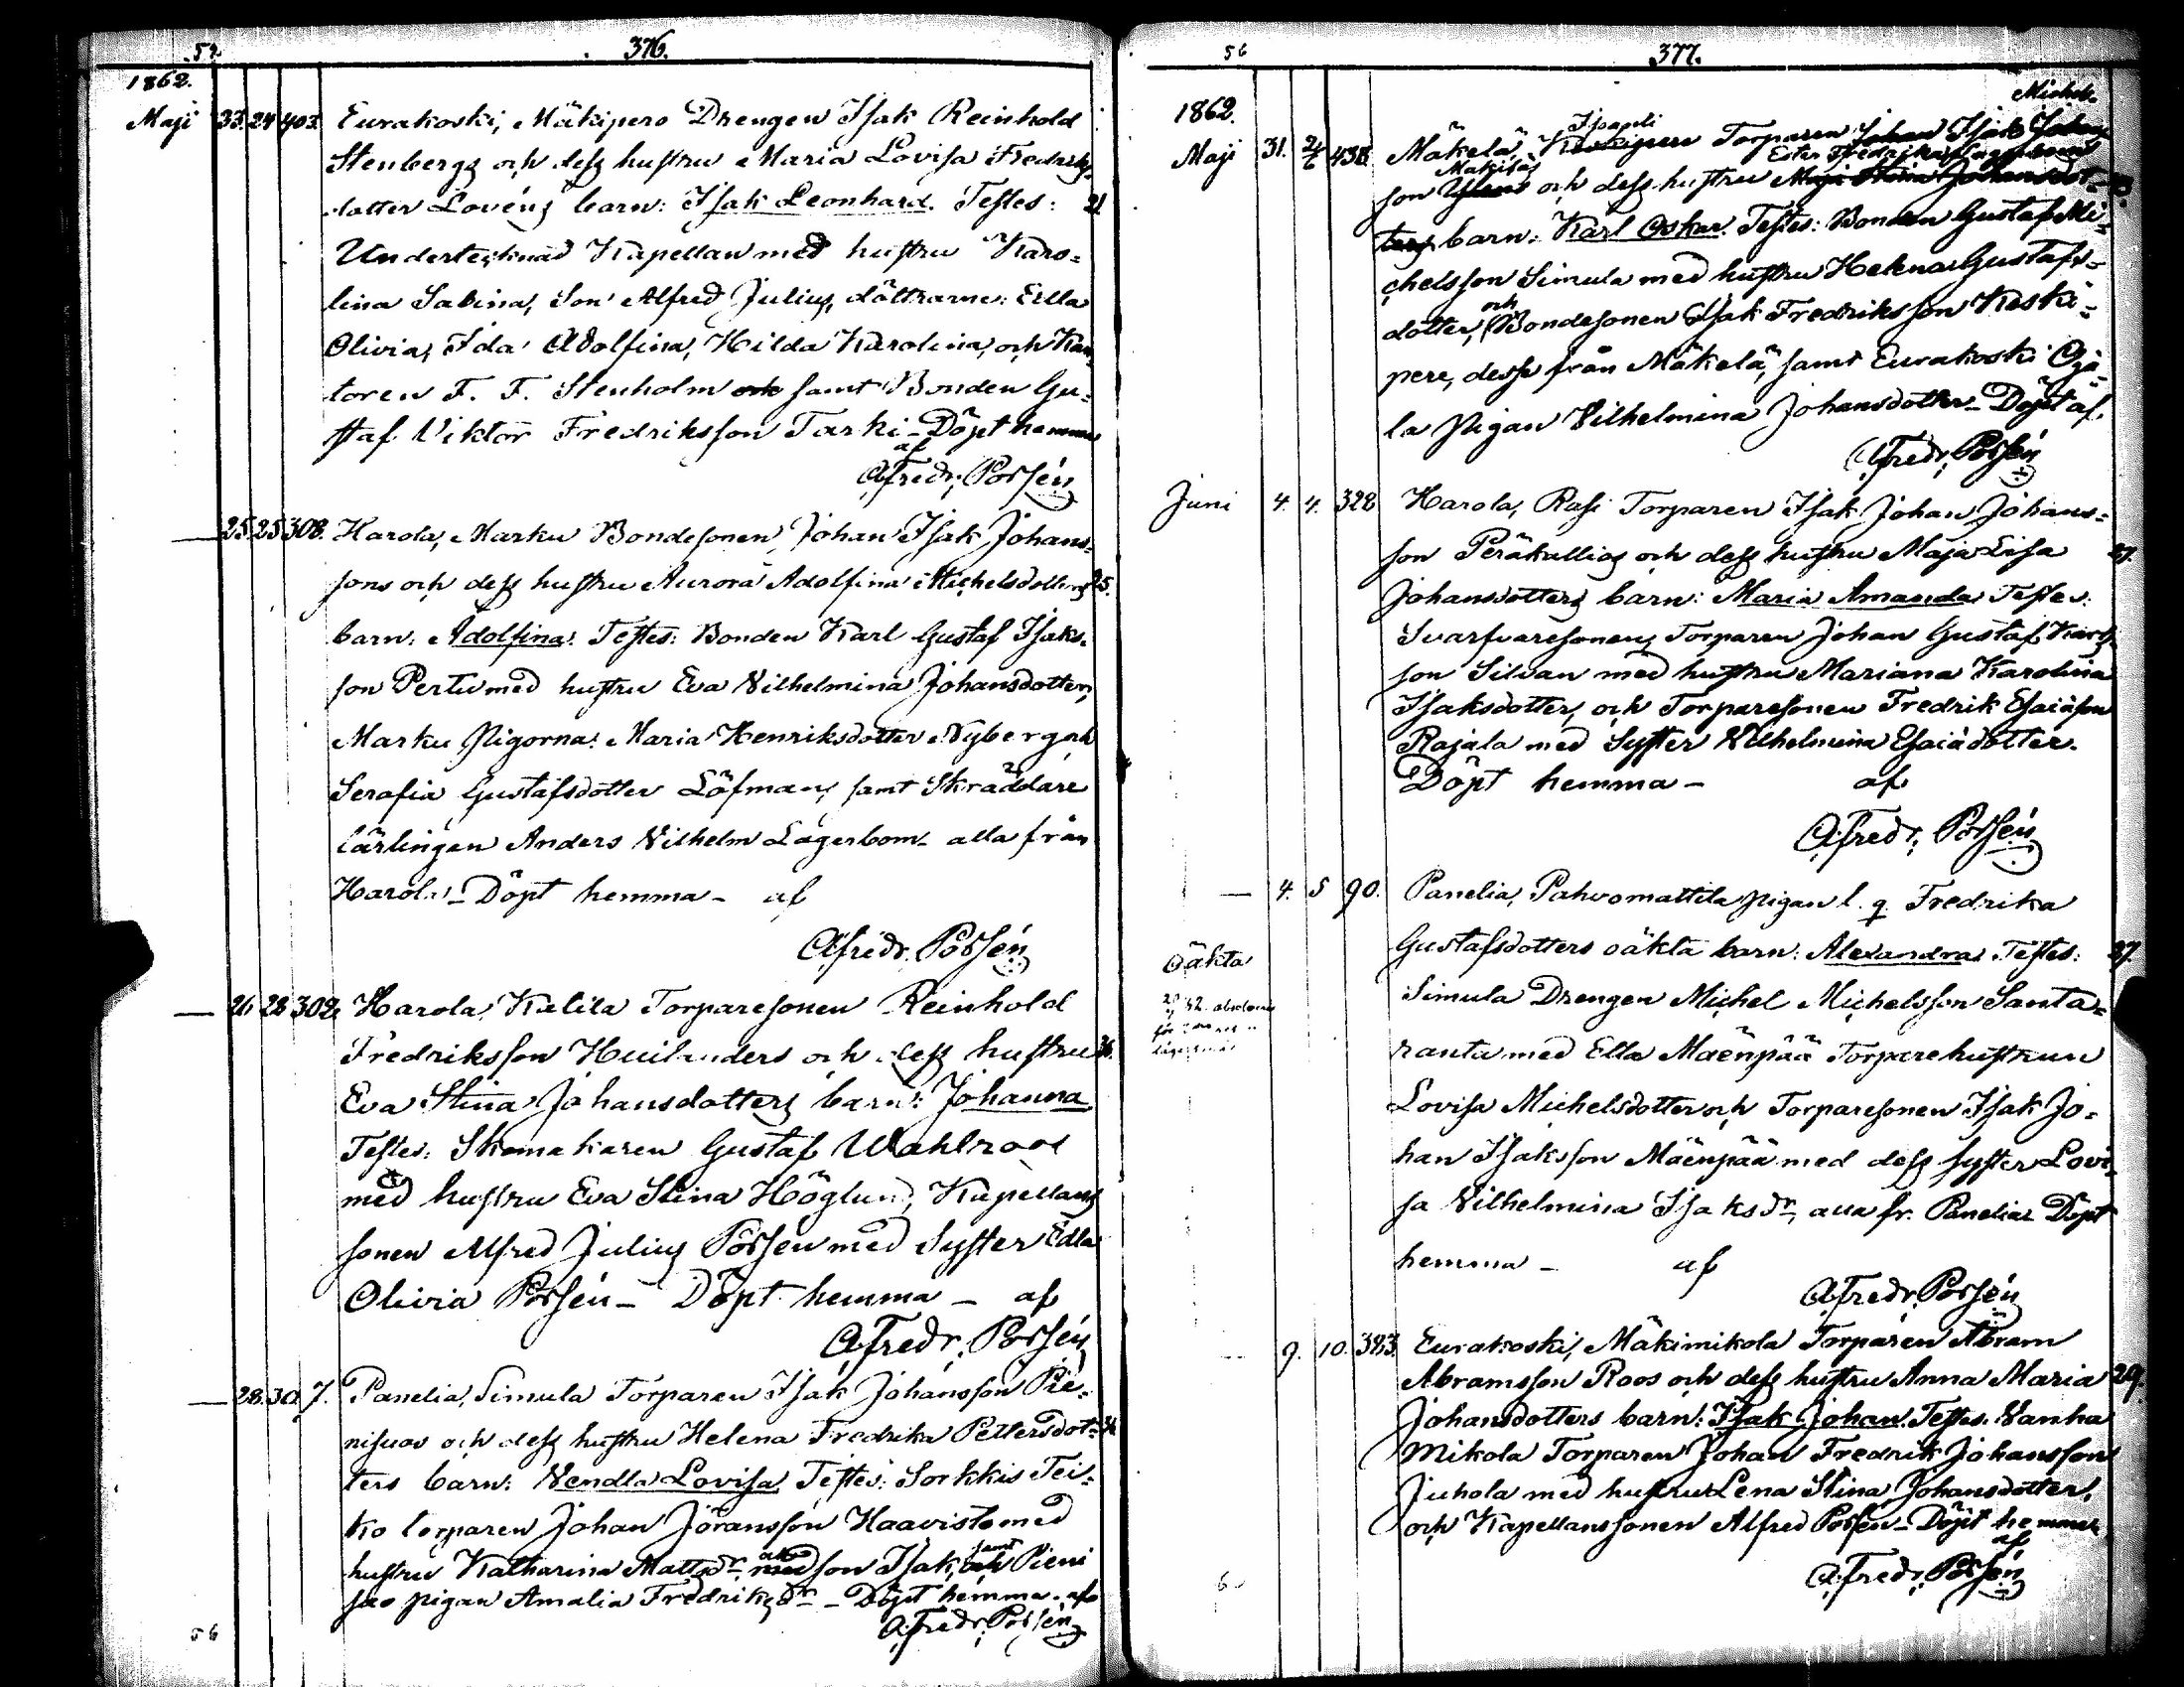 376.
1862.
Maji 23. 24 403. Eurakoski, Mäkipero Drengen Isak Reinhold
Stenbergs och dess hustru Maria Lovisa Fredriks-
dotter Lovéns barn: Isak Leonhard. Testes: 21
Undertecknad Kapellan med hustru Karo-
lina Sabina, Son Alfred Julius, döttrarne: Edla
Olivia, Ida Adolfina, Hilda Karolina, och Kan-
toren F. F. Stenholm och samt Bonden Gu-
staf Viktor Fredriksson Tarki - Döpt hemma
af
A. Fredr. Porsén
— 25 25 308. Harola, Marku Bondesonen Johan Isak Johans-
sons och dess hustru Aurora Adolfina Michelsdotters 25.
barn: Adolfina. Testes: Bonden Karl Gustaf Isaks-
son Pertu med hustru Eva Vilhelmina Johansdotter,
Marku Pigorna: Maria Henriksdotter Nyberg och
Serafia Gustafsdotter Löfman, samt Skräddare
lärlingen Anders Vilhelm Lagerbom - alla från
Harola - Döpt hemma - af
A. Fredr. Porsén
— 26 28 302. Harola, Kulila Torparesonen Reinhold
Fredriksson Huilanders och dess hustru
Eva Stina Johansdotters barn: Johanna
Testes: Skomakaren Gustaf Wahlroos
med hustru Eva Stina Höglund, Kapellans
sonen Alfred Julius Porsen med Syster Edla
Olivia Porsén - Döpt hemma - af
A. Fredr. Porsén
— 28. 30. 7. Panelia, Simula Torparen Isak Johansson Pie-
nisuos och dess hustru Helena Fredrika Pettersdot-
ters barn: Vendla Lovisa. Testes: Sorkkis Tei-
ko torparen Johan Jöransson Haavisto med
hustru Katharina Mattsdr med son Isak, samt Pieni
suo pigan Amalia Fredriksdr - Döpt hemma. af
A. Fredr. Porsén
56
56
377.
1862.
Maji 31. 2/6 438. Mäkelä, Torparen Johan Isak Johans
son och dess hustru Maja Stina Johansdot-
ters barn: Karl Oskar. Testes: Bonden Gustaf Mi-
chelsson Simula med hustru Helena Gustafs-
dotter, och Bondesonen Isak Fredriksson Keski-
pere, desse från Mäkelä, samt Eurakoski Oja-
la Pigan Vilhelmina Johansdotter - Döpt af.
A. Fredr. Porsén
Juni 4. 4. 328 Harola, Rasi Torparen Isak Johan Johans-
son Peräkallios och dess hustru Maja Lisa 27.
Johansdotters barn: Maria Amanda Testes:
Svarfvaresonen, Torparen Johan Gustaf Karls-
son Silvan med hustru Mariana Karolina
Isaksdotter, och Torparesonen Fredrik Esaiasson
Rajala med Syster Vilhelmina Esaiadotter.
Döpt hemma - af
A. Fredr. Porsén
— 4. 5 90. Panelia, Pahvomattila pigan l. q. Fredrika
Oäkta
Gustafsdotters oäkta barn: Alexandra. Testes: 27.
Simula Drengen Michel Michelsson Santa-
ranta med Ella Mäenpää Torparehustrun
Lovisa Michelsdotter och Torparesonen Isak Jo-
han Isaksson Mäenpää med dess syster Lovi-
sa Vilhelmina Isaksdr, alla fr. Panelia - Döpt
hemma - af
A. Fredr. Porsén
9. 10. 393. Eurakoski, Mäkimikola Torparen Abram
Abramsson Roos och dess hustru Anna Maria 29.
Johansdotters barn: Isak Johan. Testes: Vanha
Mikola Torparen Johan Fredrik Johansson
Juhola med hustru Lena Stina Johansdotter,
och Kapellanssonen Alfred Porsen - Döpt hemma
af
A. Fredr. Porsén